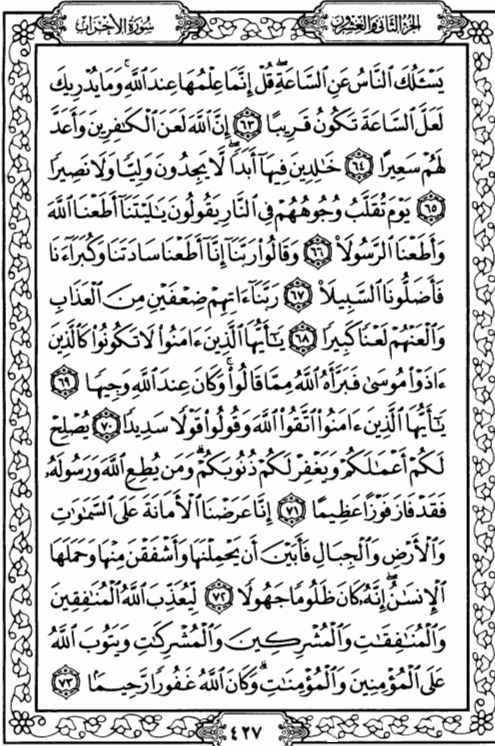 الجزء الثاني والعشرون
سورة الأحزاب
يَسْـَٔلُكَ ٱلنَّاسُ عَنِ ٱلسَّاعَةِۖ قُلْ إِنَّمَا عِلْمُهَا عِندَ ٱللَّهِۚ وَمَا يُدْرِيكَ
لَعَلَّ ٱلسَّاعَةَ تَكُونُ قَرِيبًا ٦٣ إِنَّ ٱللَّهَ لَعَنَ ٱلْكَـٰفِرِينَ وَأَعَدَّ
لَهُمْ سَعِيرًا ٦٤ خَـٰلِدِينَ فِيهَآ أَبَدًاۖ لَّا يَجِدُونَ وَلِيًّا وَلَا نَصِيرًا
٦٥ يَوْمَ تُقَلَّبُ وُجُوهُهُمْ فِى ٱلنَّارِ يَقُولُونَ يَـٰلَيْتَنَآ أَطَعْنَا ٱللَّهَ
وَأَطَعْنَا ٱلرَّسُولَا۠ ٦٦ وَقَالُوا۟ رَبَّنَآ إِنَّآ أَطَعْنَا سَادَتَنَا وَكُبَرَآءَنَا
فَأَضَلُّونَا ٱلسَّبِيلَا۠ ٦٧ رَبَّنَآ ءَاتِهِمْ ضِعْفَيْنِ مِنَ ٱلْعَذَابِ
وَٱلْعَنْهُمْ لَعْنًا كَبِيرًا ٦٨ يَـٰٓأَيُّهَا ٱلَّذِينَ ءَامَنُوا۟ لَا تَكُونُوا۟ كَٱلَّذِينَ
ءَاذَوْا۟ مُوسَىٰ فَبَرَّأَهُ ٱللَّهُ مِمَّا قَالُوا۟ۚ وَكَانَ عِندَ ٱللَّهِ وَجِيهًا ٦٩
يَـٰٓأَيُّهَا ٱلَّذِينَ ءَامَنُوا۟ ٱتَّقُوا۟ ٱللَّهَ وَقُولُوا۟ قَوْلًا سَدِيدًا ٧٠ يُصْلِحْ
لَكُمْ أَعْمَـٰلَكُمْ وَيَغْفِرْ لَكُمْ ذُنُوبَكُمْۗ وَمَن يُطِعِ ٱللَّهَ وَرَسُولَهُۥ
فَقَدْ فَازَ فَوْزًا عَظِيمًا ٧١ إِنَّا عَرَضْنَا ٱلْأَمَانَةَ عَلَى ٱلسَّمَـٰوَٰتِ
وَٱلْأَرْضِ وَٱلْجِبَالِ فَأَبَيْنَ أَن يَحْمِلْنَهَا وَأَشْفَقْنَ مِنْهَا وَحَمَلَهَا
ٱلْإِنسَـٰنُۖ إِنَّهُۥ كَانَ ظَلُومًا جَهُولًا ٧٢ لِّيُعَذِّبَ ٱللَّهُ ٱلْمُنَـٰفِقِينَ
وَٱلْمُنَـٰفِقَـٰتِ وَٱلْمُشْرِكِينَ وَٱلْمُشْرِكَـٰتِ وَيَتُوبَ ٱللَّهُ
عَلَى ٱلْمُؤْمِنِينَ وَٱلْمُؤْمِنَـٰتِۗ وَكَانَ ٱللَّهُ غَفُورًا رَّحِيمًا ٧٣
٤٢٧